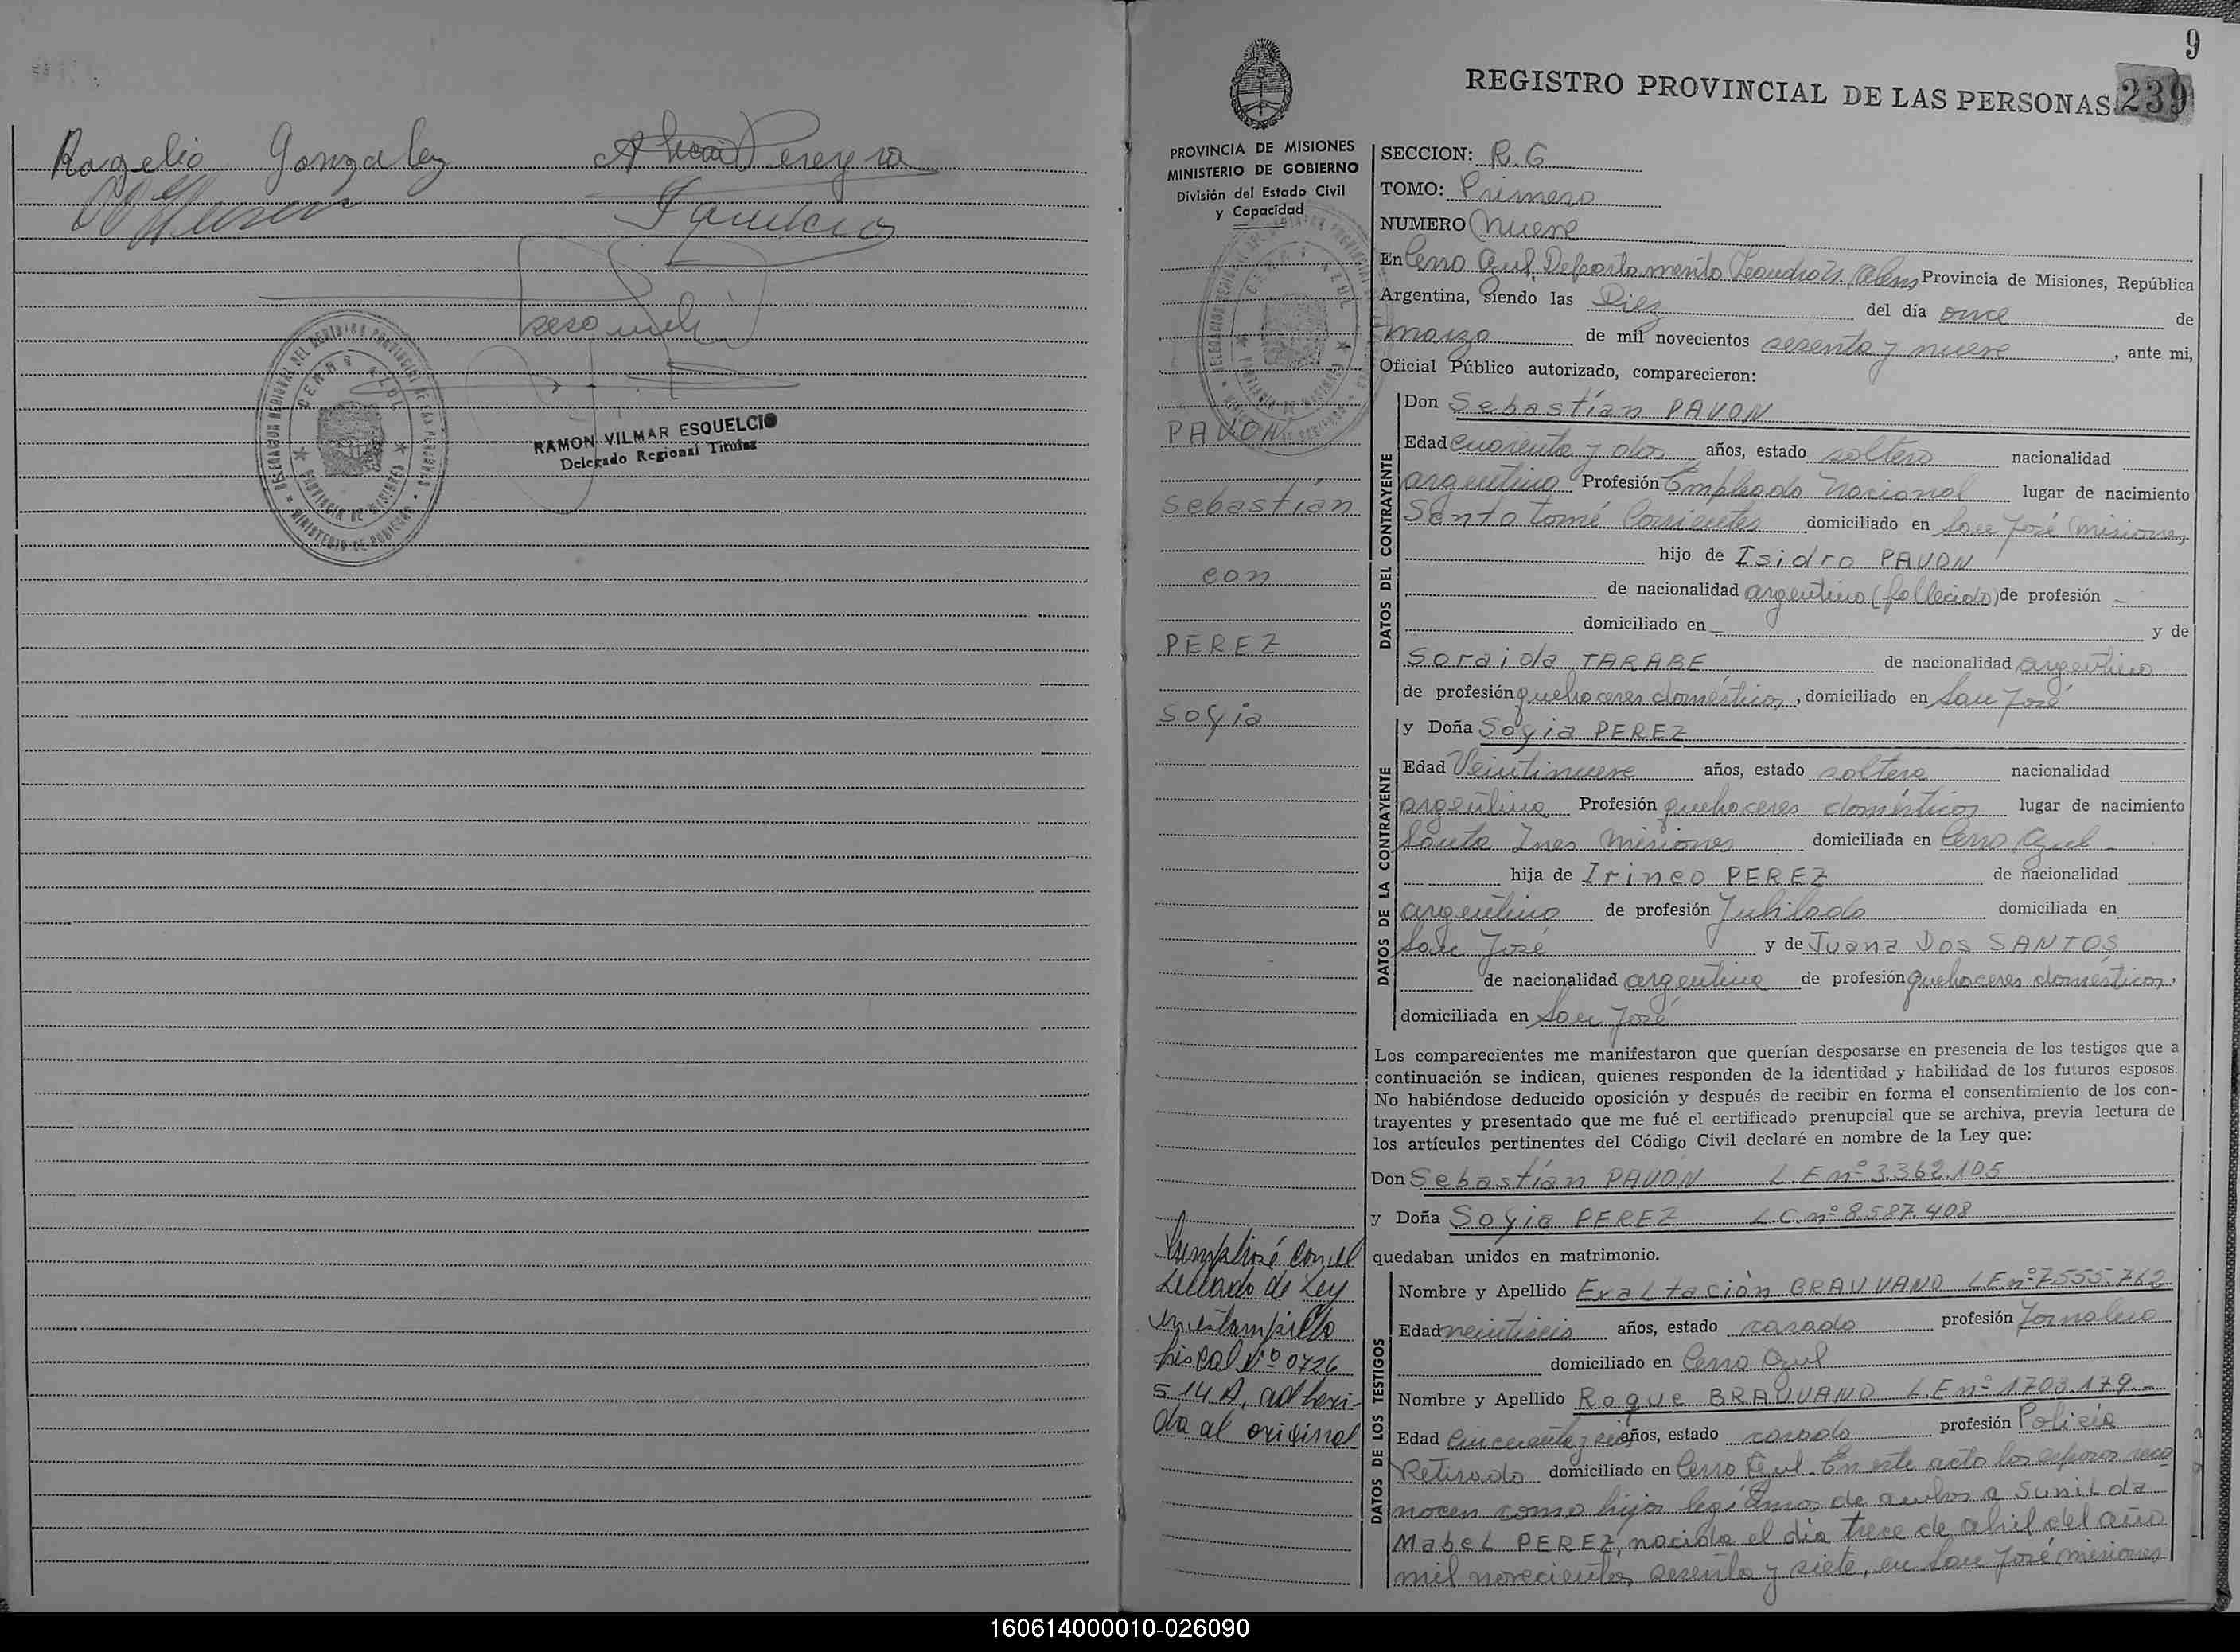 Rogelio Gonzalez
Pereyra
RAMON VILMAR ESQUELCIO
Delegado Regional Titular
DELEGACION REGIONAL DEL REGISTRO PROVINCIAL DE LAS PERSONAS
CERRO AZUL
PROVINCIA DE MISIONES
MINISTERIO DE GOBIERNO
9
REGISTRO PROVINCIAL DE LAS PERSONAS 239
PROVINCIA DE MISIONES
MINISTERIO DE GOBIERNO
División del Estado Civil
y Capacidad
PAVON
Sebastián
con
PEREZ
Sofia
Cumplióse con el
Sellado de Ley
en estampilla
fiscal Nº 0726
514 A, adheri-
da al original
SECCION: R.G.
TOMO: Primero
NUMERO Nueve
En Cerro Azul, Departamento Leandro N. Alem Provincia de Misiones, República
Argentina, siendo las Diez del día once de
marzo de mil novecientos sesenta y nueve, ante mi,
Oficial Público autorizado, comparecieron:
DATOS DEL CONTRAYENTE
Don Sebastián PAVON
Edad cuarenta y dos años, estado soltero nacionalidad
argentino Profesión Empleado Nacional lugar de nacimiento
Santo tomé Corrientes domiciliado en San José Misiones
hijo de Isidro PAVON
de nacionalidad argentino (fallecido) de profesión -
domiciliado en - y de
Soraida TARABE de nacionalidad argentina
de profesión quehaceres domésticos, domiciliado en San José
DATOS DE LA CONTRAYENTE
y Doña Sofia PEREZ
Edad Veintinueve años, estado soltera nacionalidad
argentina Profesión quehaceres domésticos lugar de nacimiento
Santa Ines Misiones domiciliada en Cerro Azul -
hija de Irineo PEREZ de nacionalidad
argentino de profesión Jubilado domiciliada en
San José y de Juana DOS SANTOS
de nacionalidad argentina de profesión quehaceres domésticos,
domiciliada en San José
Los comparecientes me manifestaron que querían desposarse en presencia de los testigos que a
continuación se indican, quienes responden de la identidad y habilidad de los futuros esposos.
No habiéndose deducido oposición y después de recibir en forma el consentimiento de los con-
trayentes y presentado que me fué el certificado prenupcial que se archiva, previa lectura de
los artículos pertinentes del Código Civil declaré en nombre de la Ley que:
Don Sebastián PAVON L.E nº 3.362.105
y Doña Sofia PEREZ L.C. nº 8.587.408
quedaban unidos en matrimonio.
DATOS DE LOS TESTIGOS
Nombre y Apellido Exaltación BRAUVANO LE nº 7.555.762
Edad veintiseis años, estado casado profesión Jornalero
domiciliado en Cerro Azul
Nombre y Apellido Roque BRAUVANO L.E nº 1.703.179.-
Edad Cincuenta y seis años, estado casado profesión Policía
Retirado domiciliado en Cerro Azul. En este acto los esposos reco
nocen como hijos legítimos de ambos a Sunilda
Mabel PEREZ, nacida el día trece de abril del año
mil novecientos sesenta y siete, en San José Misiones
160614000010-026090